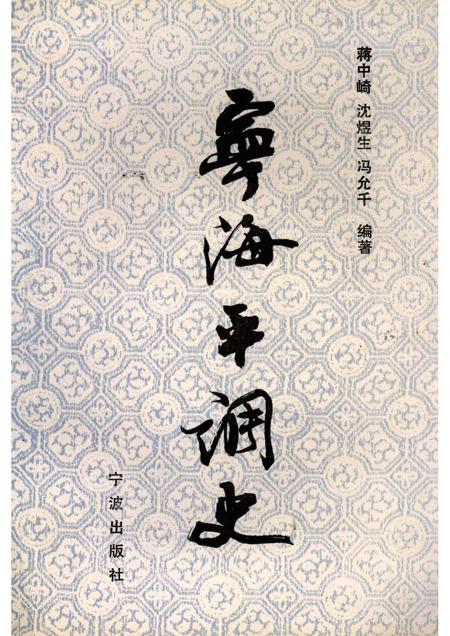 蒋中崎 沈煜生 冯允千 编著
寧海平调史
宁波出版社